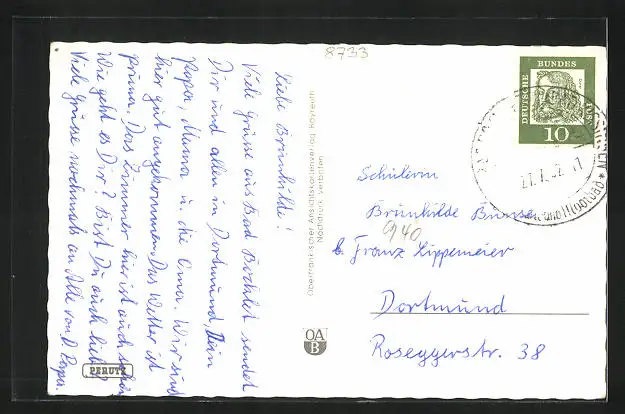 8733
Liebe Brünhilde!
Viele Grüsse aus Bad Bocklet sendet
Dir und allen in Dortmund, Dein
Papa, Mama u. die Oma. Wir sind
hier gut angekommen. Das Wetter ist
prima. Das Zimmer hier ist auch schön
Wie geht es Dir? Bist Du auch lieb?
Viele Grüsse nochmals an Alle von D. Papa.
PERUTZ
Oberfränkischer Ansichtskartenverlag Bayreuth
Nachdruck verboten
OA
B
DEUTSCHE
BUNDES
10
Schülerin
Brünhilde Bunse
940
b. Franz Lippemeier
Dortmund
Roseggerstr. 38